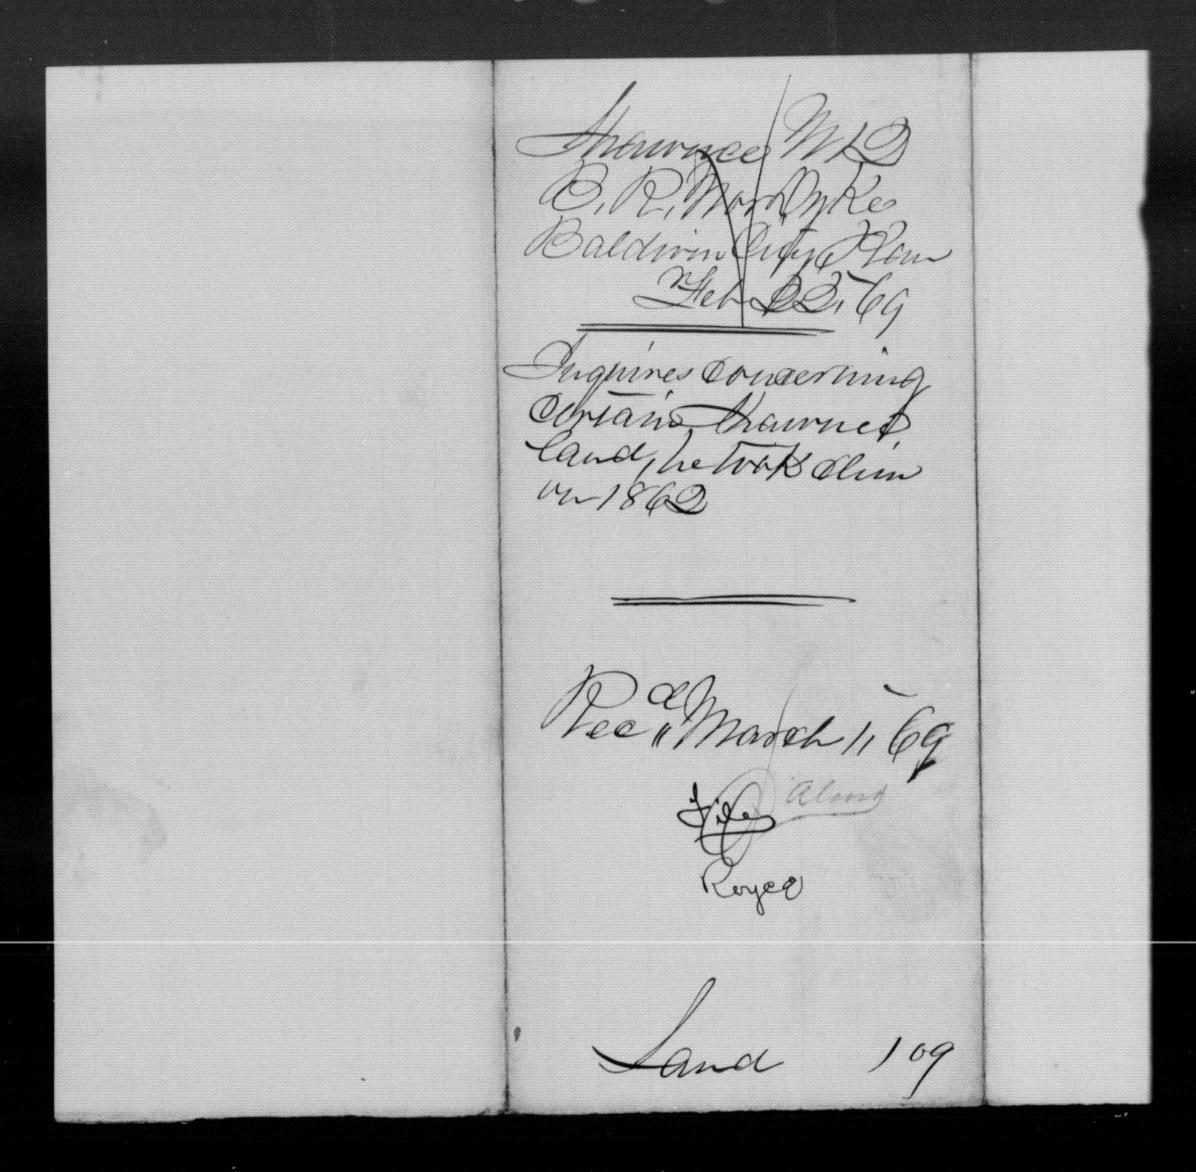 Shawnee
B. R.
Baldwin City Kan
Feb 22, 69
Inquires concerning
certain Shawnee
land, he took clim
on 1862
Rec'd March 1, 69
File
Royce
Land 109